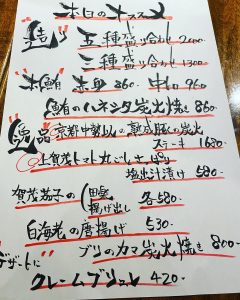 本日のオススメ
造り 五種盛り合わせ 2000-
三種盛り合わせ 1300-
本鮪 赤身 860- 中トロ 960
鮪のハネシタ炭火焼き 860-
逸品 京都中勢以の熟成豚の炭火
ステーキ 1680-
上賀茂トマト丸ごしとっぱり
塩出汁漬け 580-
賀茂茄子の 田楽 揚げ出し 各580-
白海老の唐揚げ 530-
ブリのカマ炭火焼き 800-
デザートに
クレームブリュレ 420-